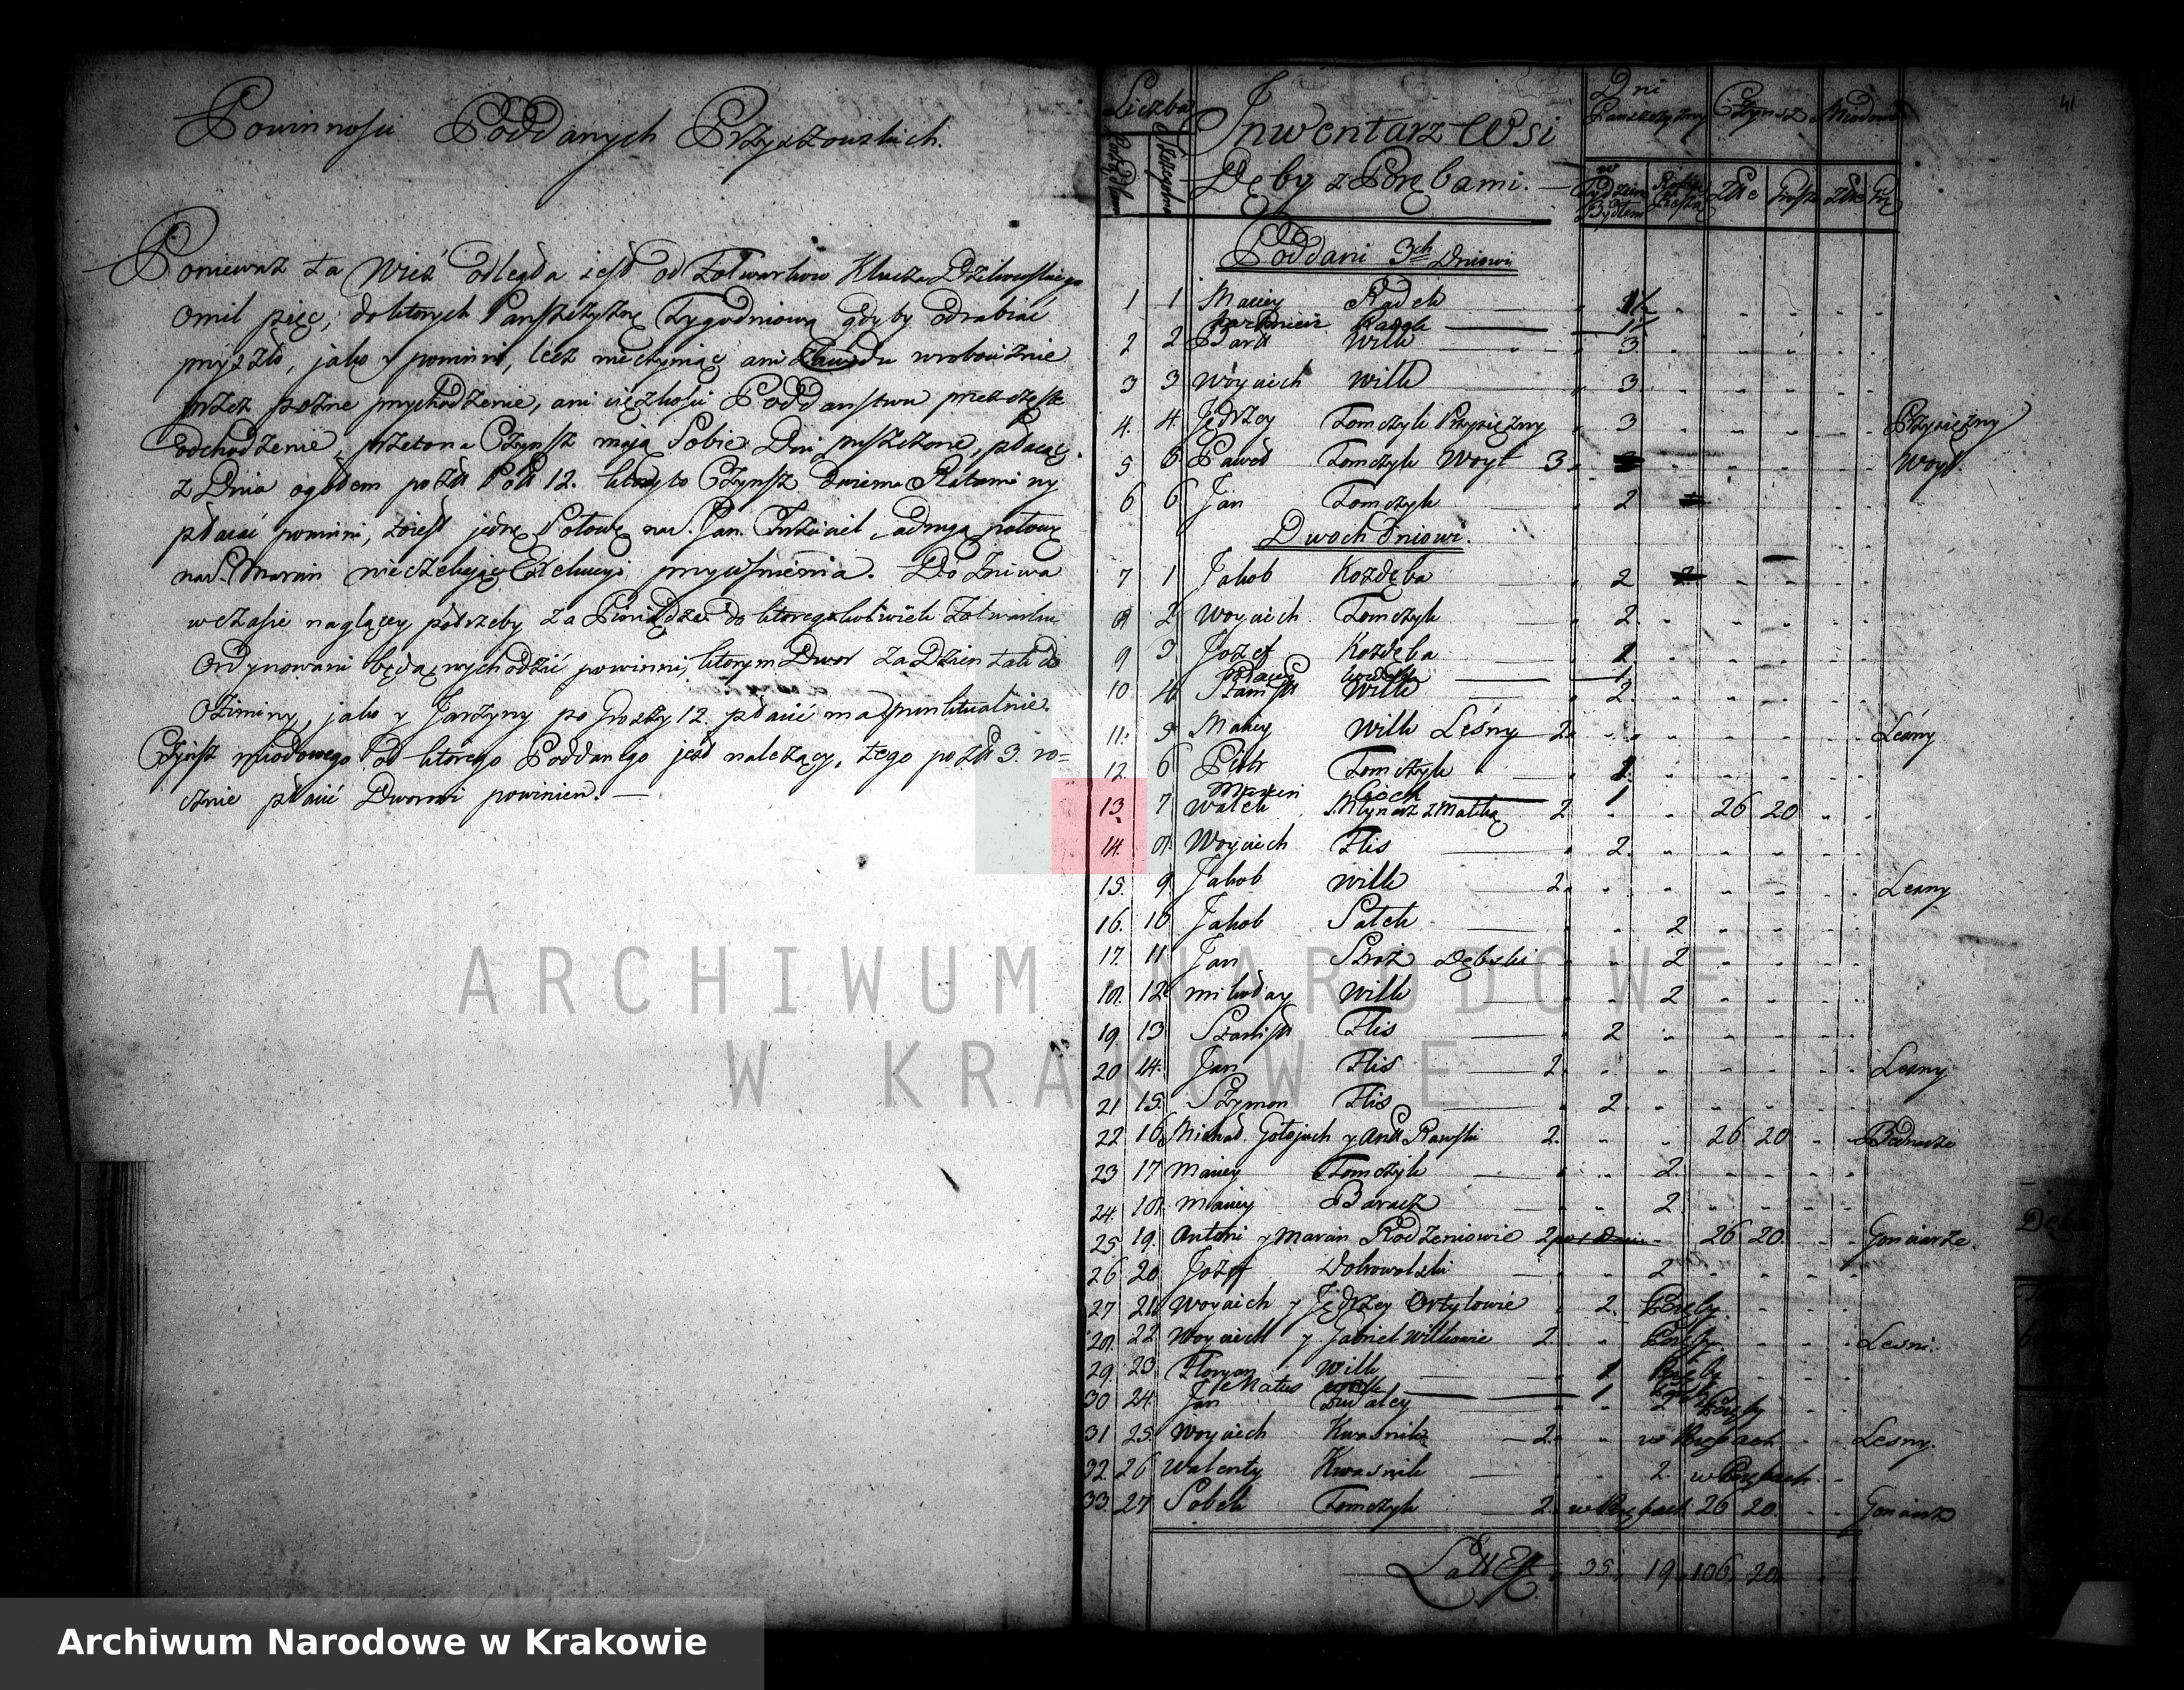 Powinnosci Poddanych Przyszowskich.
Poniewaz ta Wieś odległa iest od Folwarkow Klucza Dzikowskiego
o mil pięc, do ktorych Panszczyznę Tygodniową gdyby odrabiać
przyszło, jako y powinni, lecz nie czyniąc ani Zawodu w robociznie
przez pozne przychodzenie, ani ciężkosci Poddanstwu przez częste
odchodzenie, przeto na Czynsz mają Sobie Dni puszczone, płacąc
z Dnia ogołem po Złł Pols 12. ktory to Czynsz dwiema Ratami
płacić powinni, to iest jednę Połowę na S. Jan Krzciciel, a drugą połowę
na S. Marcin nie czekając Exekucyi przycisnienia. Do Zniwa
w czasie naglącey potrzeby za Pieniądze do ktoregokolwiek Folwarku
Ordynowani będą wychodzić powinni, ktorym Dwor za Dzien tak do
Oziminy, jako y Jarzyny po Groszy 12. płacić ma punktualnie.
Czynsz miodowego od ktorego Poddanego jest należący, tego po Złł 3. ro=
cznie płacić Dworowi powinien.
41
Liczba Inwentarz Wsi Dni Panszczyzny Czynsz Miodowe
Dęby z Porębami. w Tydzien Bydłem Złte Grosze Złte Gr
Poddani 3ch Dniowi
1 1 Maciey Radek 1½
Kazimierz Radek 1½
2 2 Bartł Wilk 3
3 3 Woyciech Wilk 3
4. 4. Jędrzey Tomczyk Przysiężny 3 Przysiężny
5 5 Paweł Tomczyk Woyt 3 Woyt
6 6 Jan Tomczyk 2
Dwoch Dniowi.
7 1 Jakob Kozdęba 2
8 2 Woyciech Tomczyk 2
9 3 Jozef Kozdęba 1
Paweł 1
10 4 Stanisł Wilk 2
11. 5 Maciey Wilk Leśny 2 Leśny
12. 6 Piotr Tomczyk 1
Marcin Cioch 1
13 7 Walek Młynarz z Matką 2 26 20
14. 8 Woyciech Flis 2
15. 9 Jakob Wilk 2 Lesny
16. 10 Jakob Sałek 2
17. 11 Jan Stroz Dębski 2
18. 12 Mikołay Wilk 2
19. 13 Stanisł Flis 2
20 14. Jan Flis 2 Lesny
21 15. Szymon Flis 2
22 16 Michał Gołojuch y Rawski 2 26 20 Bednarze
23 17 Maciey Tomczyk 2
24. 18 Maciey Baracz 2
25 19. Antoni y Marcin Rodzeniowie 2 26 20 Gonciarze
26 20 Jozef Dobrowolski 2
27 21 Woyciech y Jędrzey Ortylowie 2 Poręby
28. 22 Woyciech y Gabriel Wilkowie 2 Poręby Lesni.
29 23 Floryan Wilk 1 Poręby
Matus Wilk 1 Poręby
30 24. Jan 2 Poręby
31 25. Woyciech Kwasnik 2 w Porębach Lesny.
32 26 Walenty Kwasnik 2 w Porębach
33 27 Sobek Tomczyk 2 w Porębach 26 20 Gonciarz
Latus 35 19 106 20
ARCHIWUM NARODOWE
W KRAKOWIE
Archiwum Narodowe w Krakowie